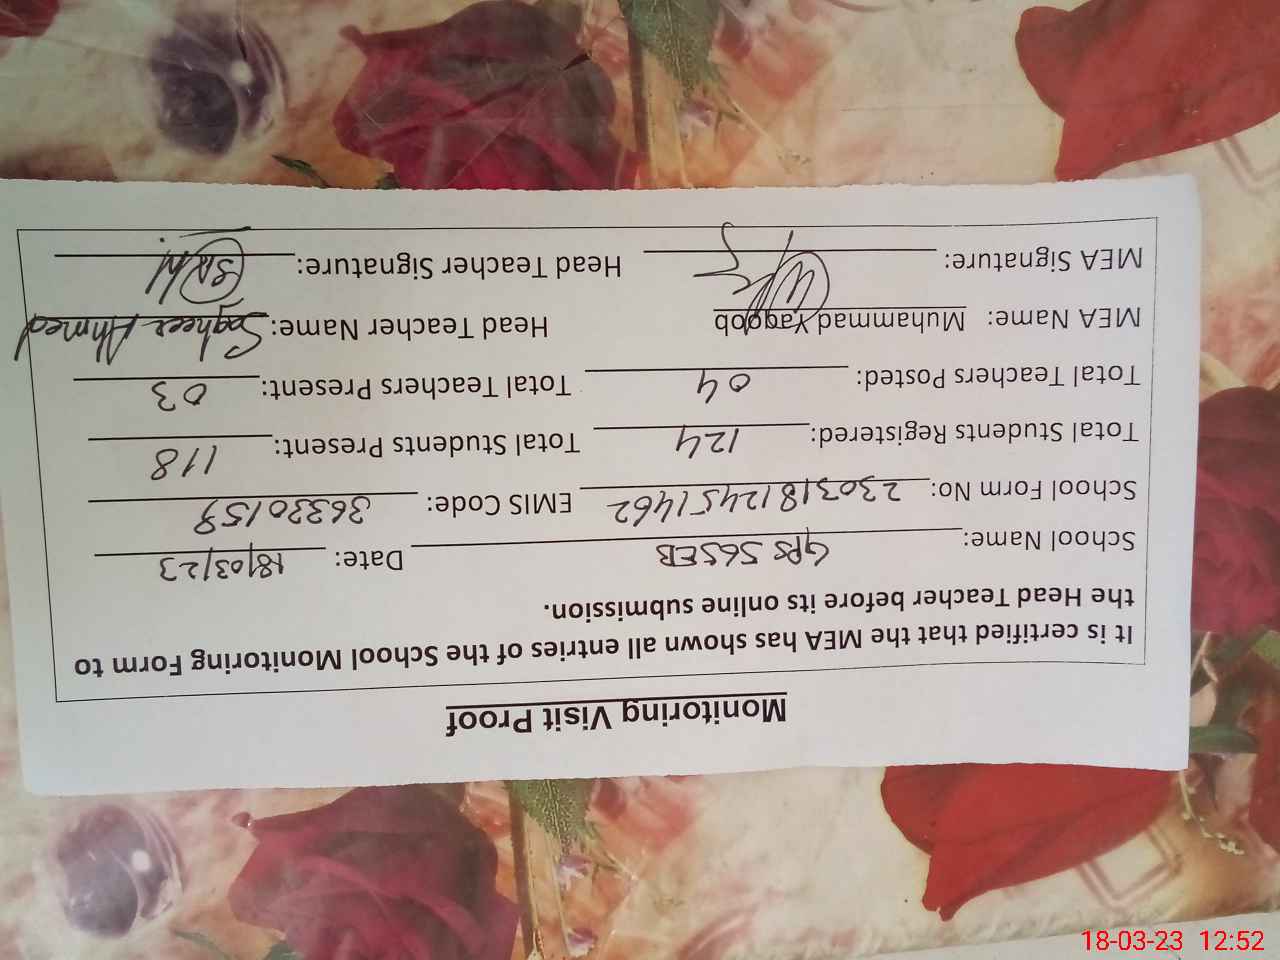 Monitoring Visit Proof
It is certified that the MEA has shown all entries of the School Monitoring Form to
the Head Teacher before its online submission.
School Name: GPS 56SEB Date: 18/03/23
School Form No: 23031812451462 EMIS Code: 36320159
Total Students Registered: 124 Total Students Present: 118
Total Teachers Posted: 04 Total Teachers Present: 03
MEA Name: Muhammad Yaqoob Head Teacher Name: Sagheer Ahmed
MEA Signature: Head Teacher Signature:
18-03-23 12:52